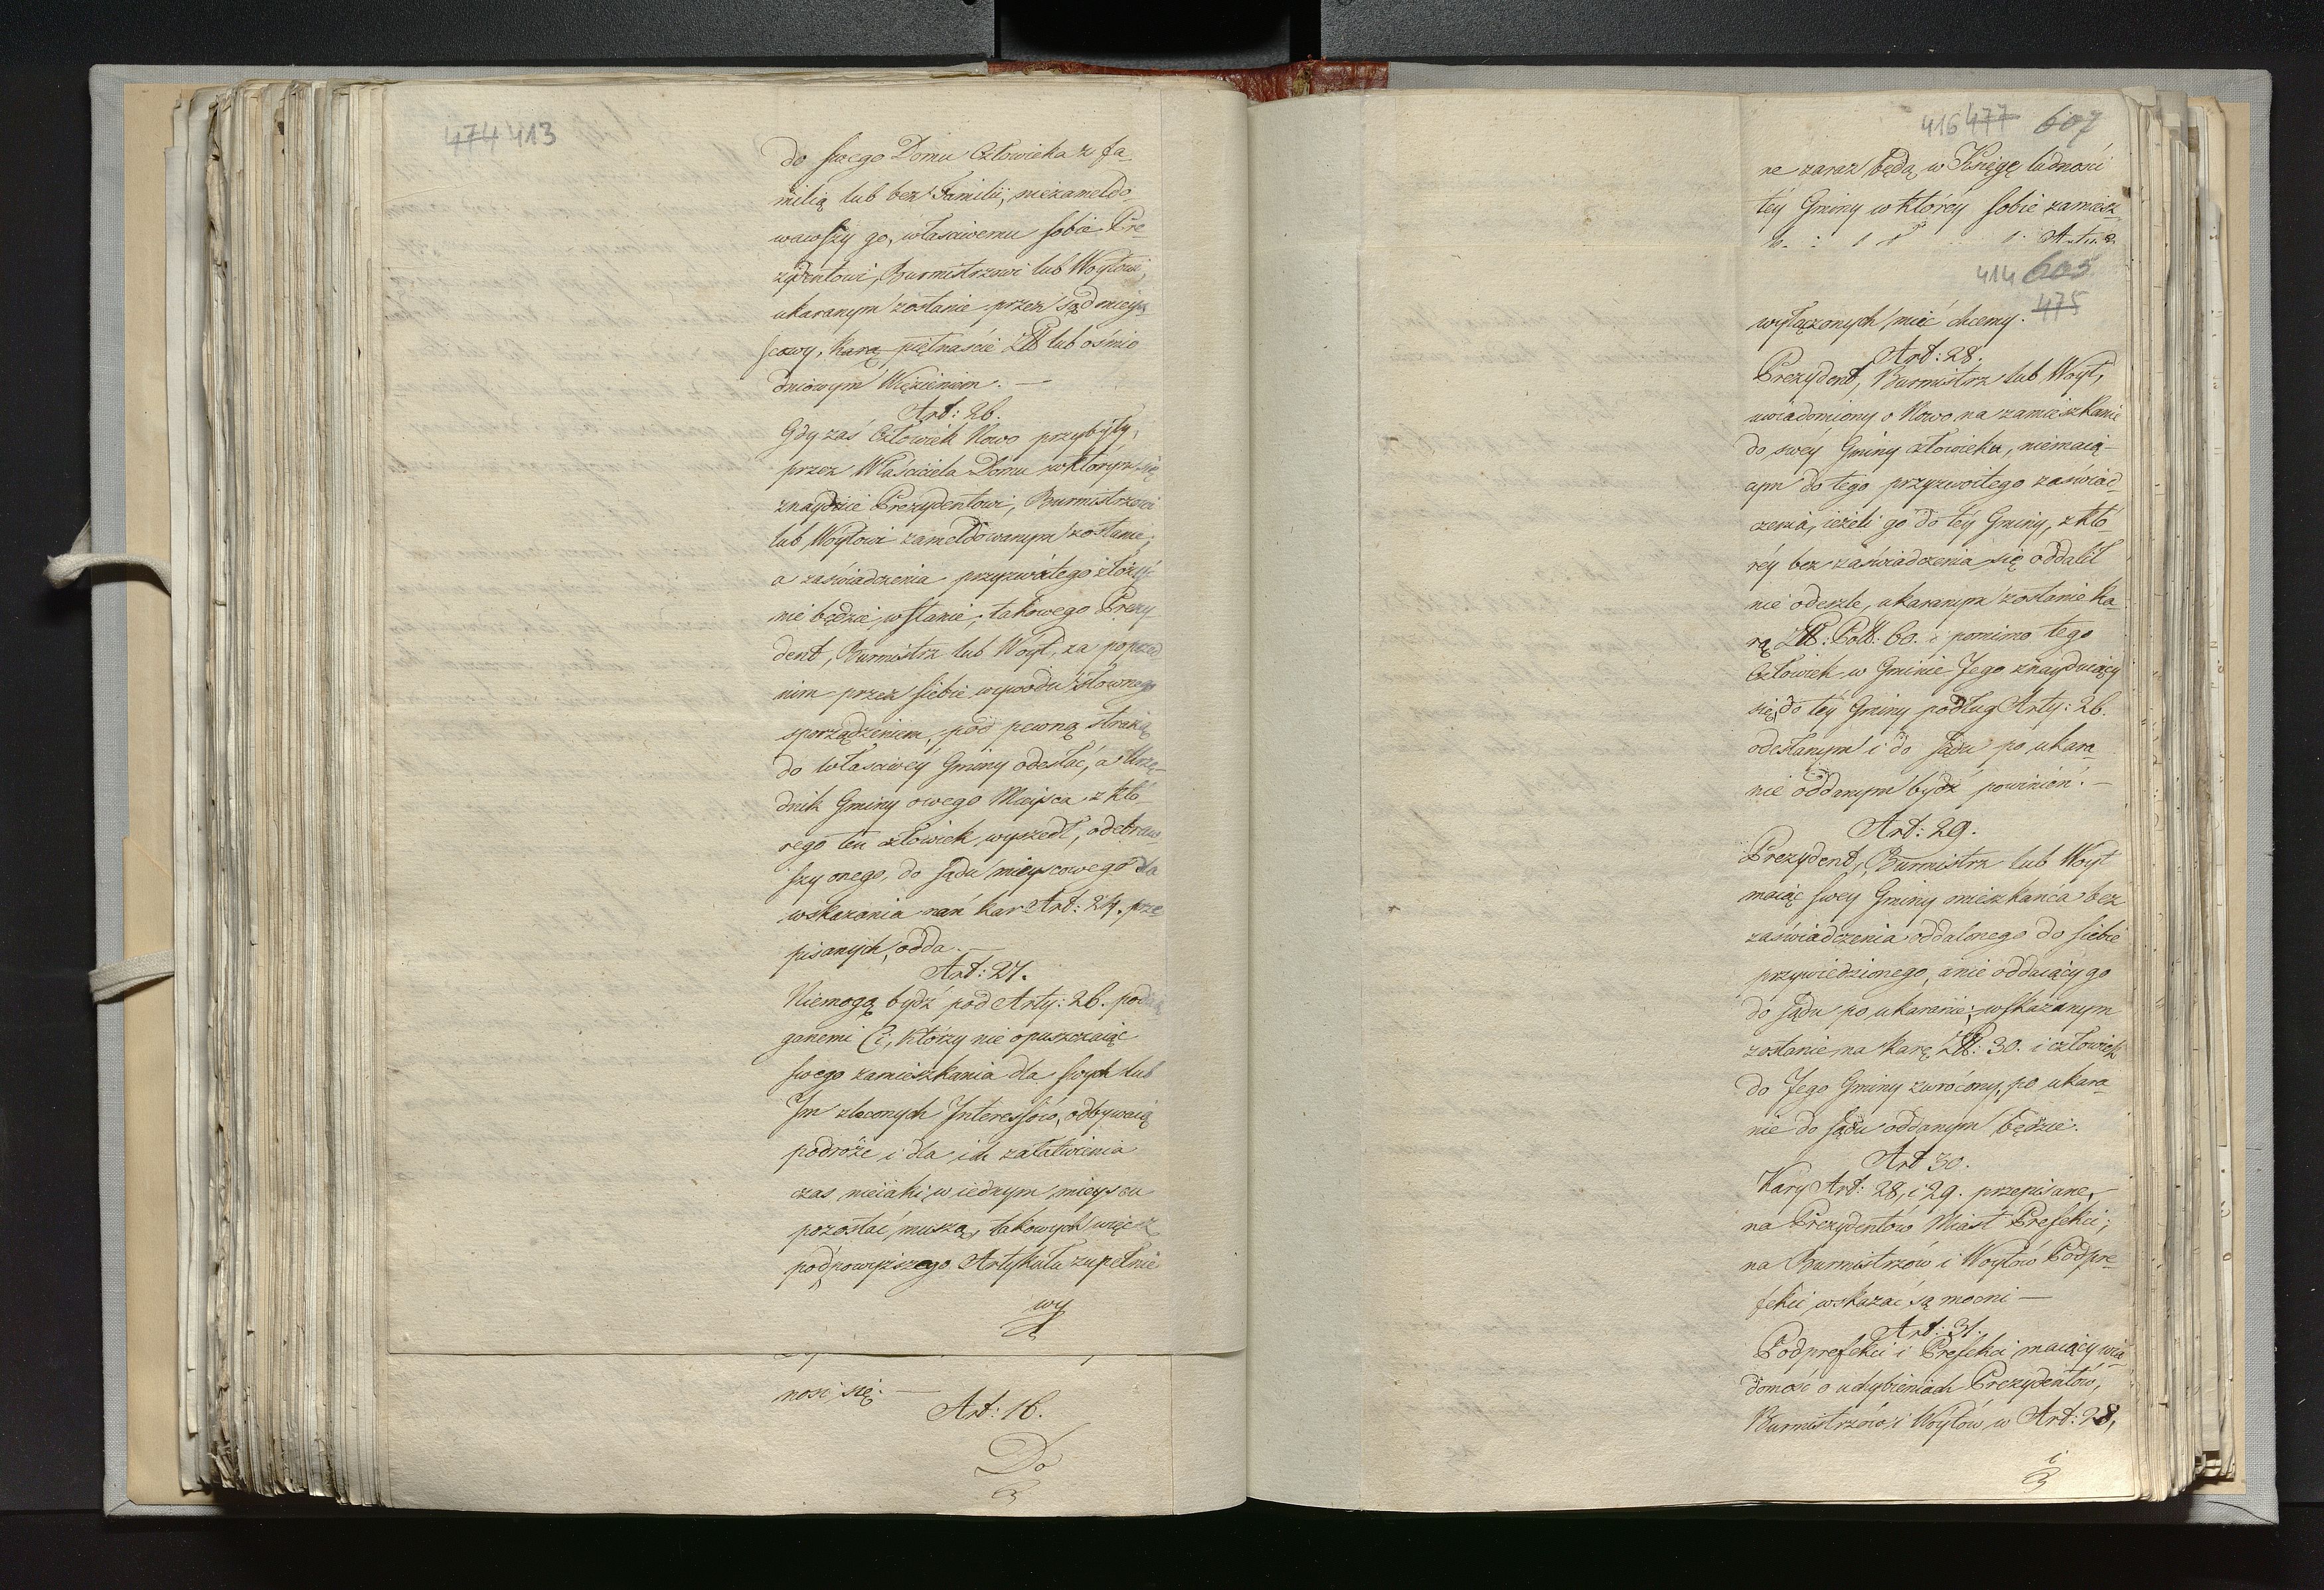 474 413
do swego Domu Człowieka z fa-
milią lub bez Familii, niezameldo-
wawszy go, własciwemu sobie Pre-
zydentowi, Burmistrzowi lub Woytowi,
ukaranym zostanie przez sąd miey-
scowy, karą piętnaście Zł lub ośmio
dniowym Więzieniem. —
Art: 26.
Gdy zaś Człowiek Nowo przybyły,
przez Właściciela Domu w którym się
znaydzie Prezydentowi, Burmistrzowi
lub Woytowi zameldowanym zostanie,
a zaświadczenia przyzwoitego złożyć
nie będzie w stanie, takowego Prezy-
dent, Burmistrz lub Woyt, za poprzed
nim przez siebie wywodu słownego
sporządzeniem, pod pewną strażą
do własciwéy Gminy odesłać, a Urzę-
dnik Gminy owego Mieysca z któ-
rego ten człowiek wyszedł, odebraw
szy onego, do sądu mieyscowego dla
wskazania nań kar Art: 24. prze
pisanych, odda. —
Art: 27.
Niemogą bydź pod Arty: 26. podcią
ganemi Ci, którzy nie opuszczaiąc
swego zamieszkania dla swych lub
Im zleconych Interessów, odbywaią
podróże i dla ich załatwienia
czas nieiaki w iednym mieyscu
pozostać muszą, takowych więc z
pod powyższego Artykułu zupełnie
wy
nosi się. —
Art: 16.
Do
416 477 607
ne zaraz będą w Księgę ludności
téy Gminy w któréy sobie zamiesz
414 605
475
wyłączonych mieć chcemy.
Art: 28.
Prezydent, Burmistrz lub Woyt,
uwiadomiony o Nowo na zamieszkanie
do swéy Gminy człowieku, niemaią-
cym do tego przyzwoitego zaświad-
czenia, ieżeli go do téy Gminy, z któ
réy bez zaświadczenia się oddalił
nie odeszle, ukaranym zostanie ka-
rą Zł: Pol: 60. i pomimo tego
Człowiek w Gminie Jego znayduiący
się, do téy Gminy podług Arty: 26.
odesłanym i do Sądu po ukara-
nie oddanym bydź powinien. —
Art: 29.
Prezydent, Burmistrz lub Woyt
maiąc swey Gminy mieszkańca bez
zaświadczenia oddalonego do siebie
przywiedzionego, a nie oddaiący go
do sądu po ukaranie; wskazanym
zostanie na karę Zł: 30. i człowiek
do Jego Gminy zwrócony, po ukara-
nie do sądu oddanym będzie.
Art 30.
Kary Art: 28, i 29. przepisane,
na Prezydentów Miast Prefekci;
na Burmistrzów i Woytów Podpre-
fekci wskazać są mocni —
Art: 31.
Podprefekci i Prefekci maiący wia-
domość o uchybieniach Prezydentów,
Burmistrzów i Woytów w Art: 28,
i